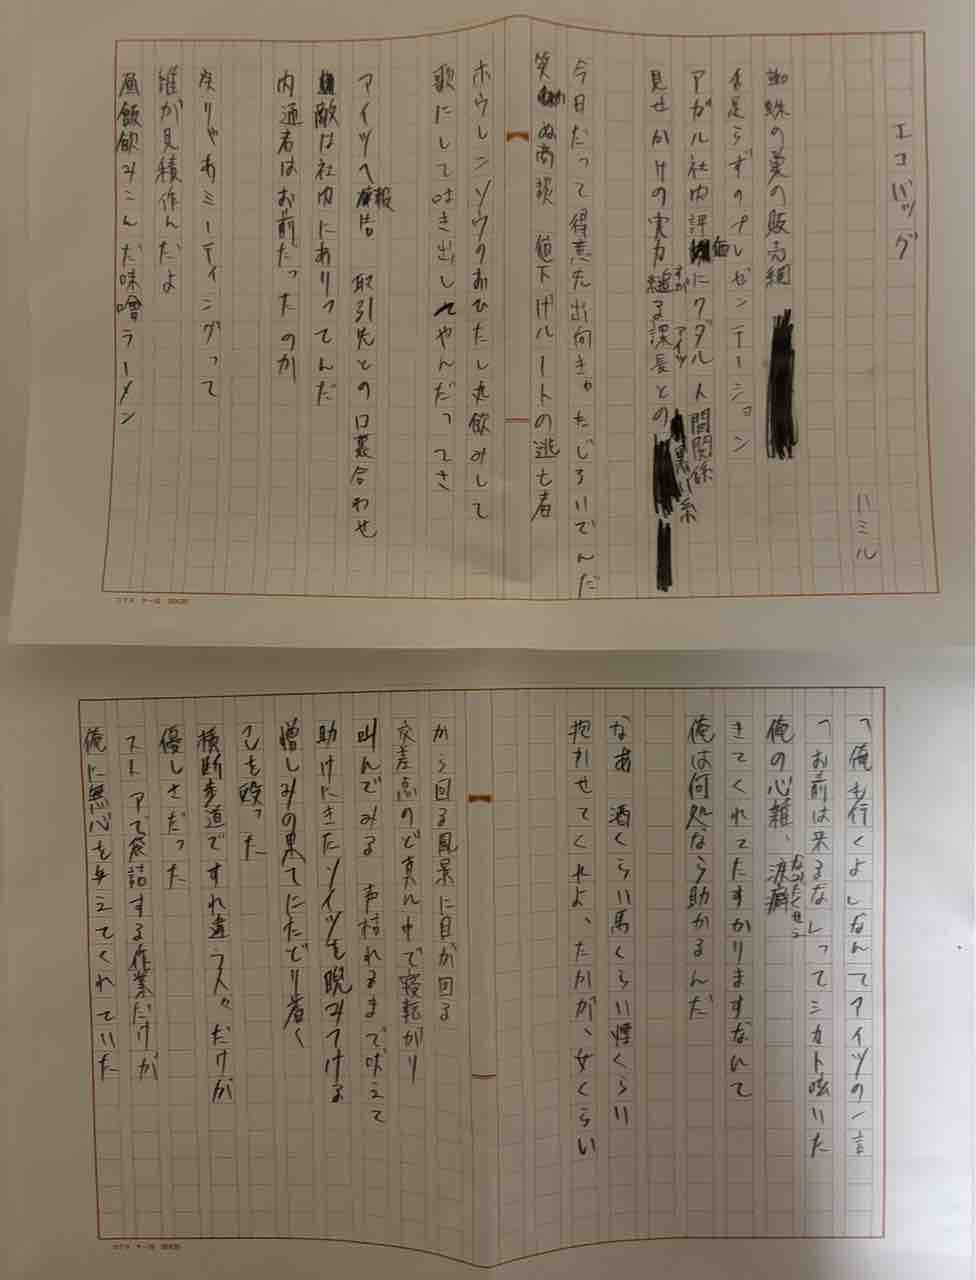 エコバッグ
ハミル
蜘蛛の巣の販売網
舌足らずのプレゼンテーション
アガル社内評価にクダル人間関係
見せかけの実力 縋る課長との黒い糸
すが
アイツ
今日だって得意先出向きゃたじろいでんだ
笑わぬ商談 値下げルートの逃亡者
ホウレンソウのおひたし丸飲みして
歌にしてはき出してやんだってさ
アイツへ報告 取引先との口裏合わせ
敵は社内にありってんだ
内通者はお前だったのか
戻りゃあミーティングって
誰が見積作んだよ
昼飯飲みこんだ味噌ラーメン
「俺も行くよ」なんてアイツの一言
「お前は来るな」ってシカト呟いた
俺の心雑、涙癖
きてくれてたすかりますなんて
俺は何処なら助かるんだ
なあ 酒くらい馬くらい煙くらい
抱かせてくれよ、たかが、女くらい
から回る風景に目が回る
交差点のど真ん中で寝転がり
叫んでみる 声枯れるまで吠えて
助けにきたソイツを睨みつける
憎しみの果てにたどり着く
心を殴った
横断歩道ですれ違う人々だけが
優しさだった
ストアで袋詰する作業だけが
俺に無心を与えてくれていた